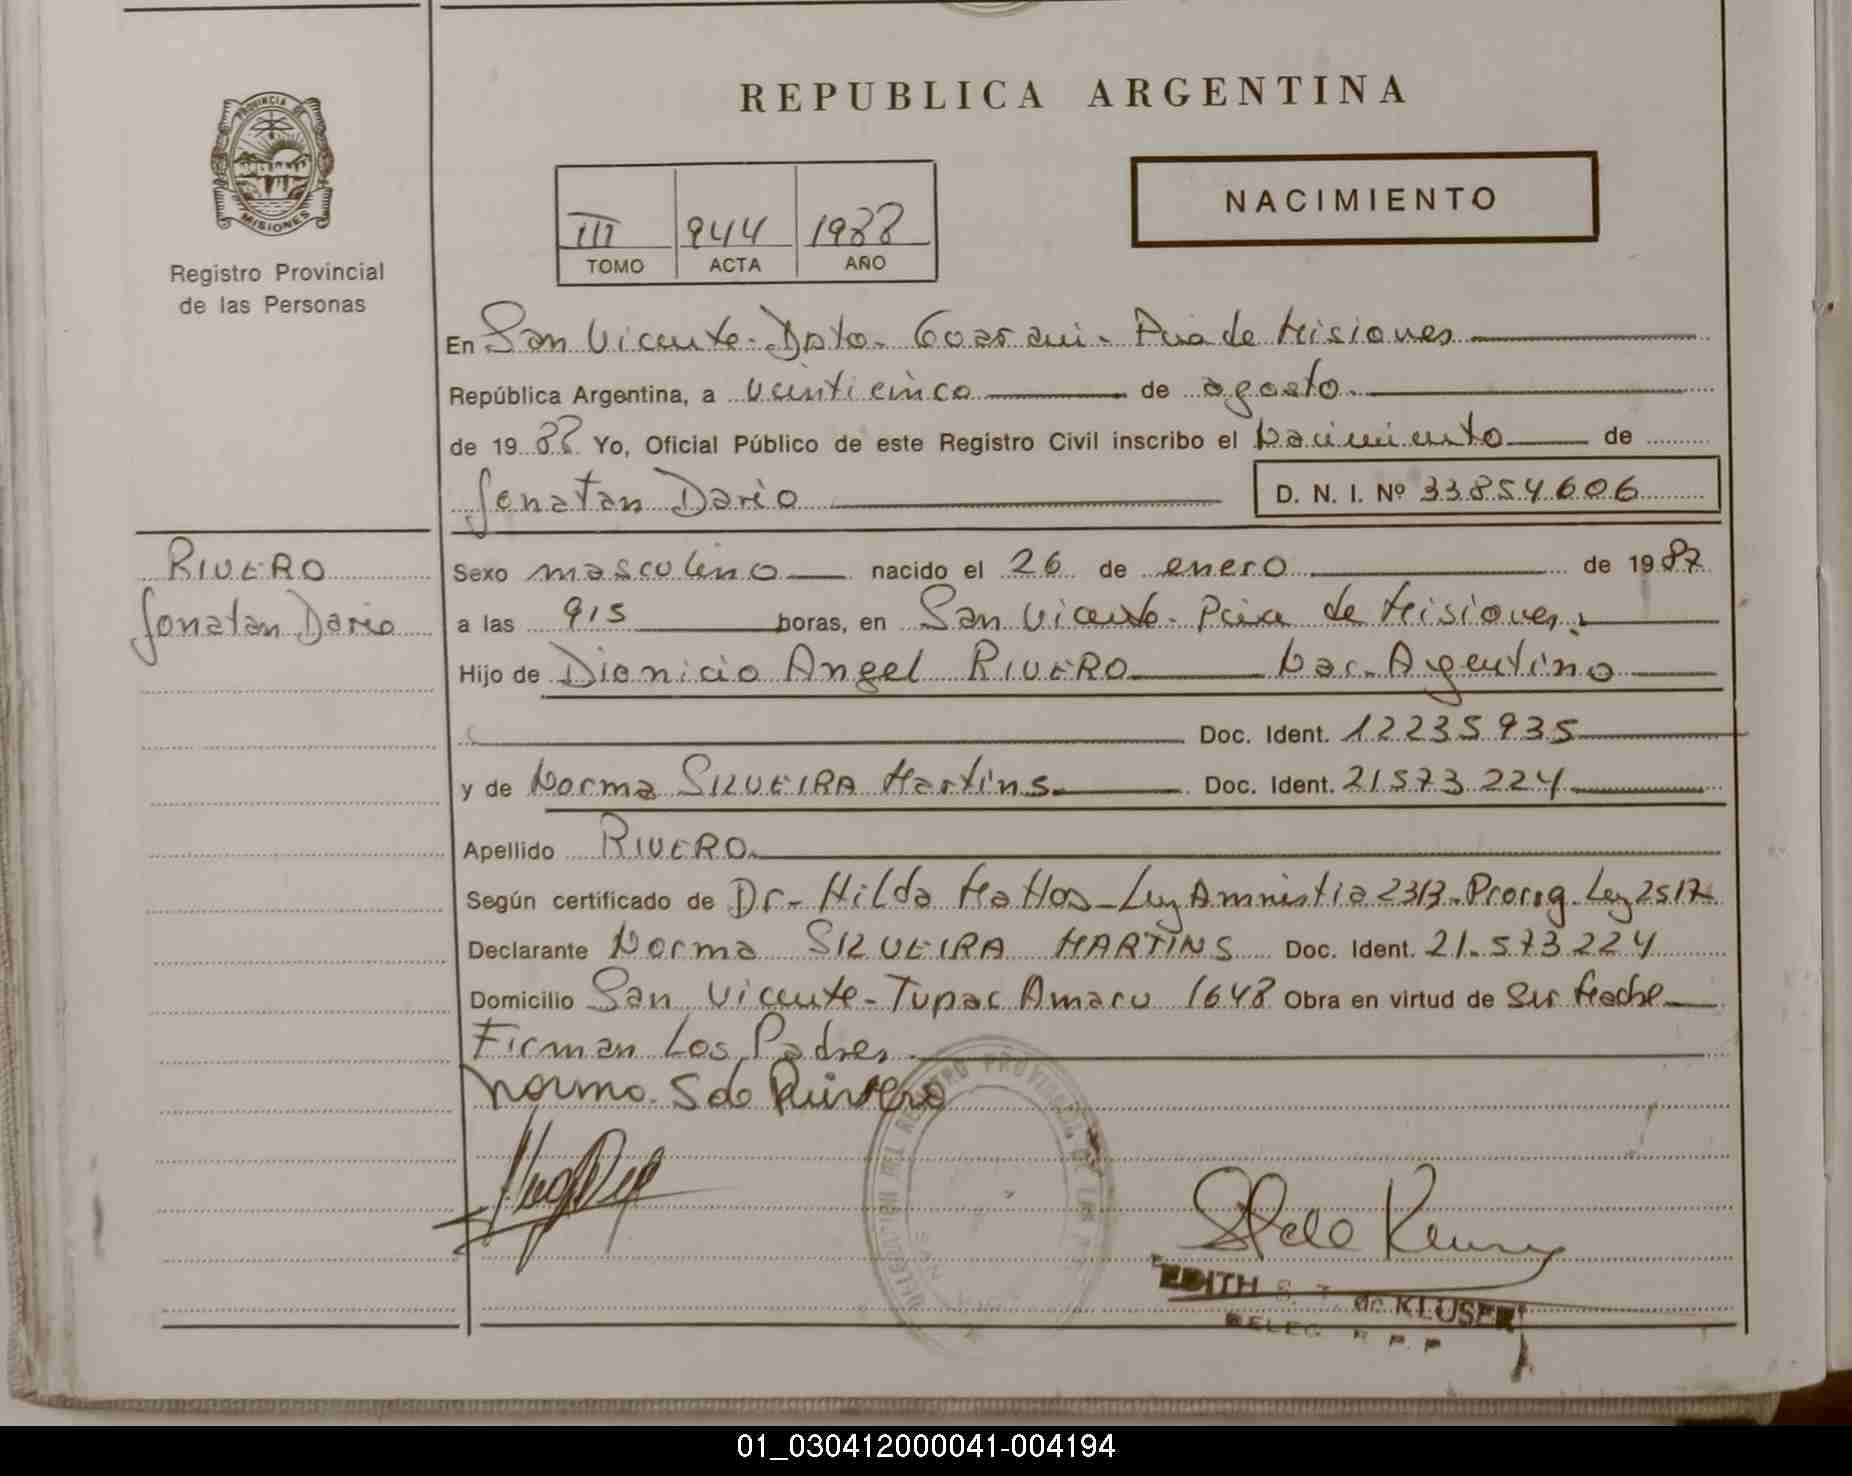 PROVINCIA DE
MISIONES
Registro Provincial
de las Personas
REPUBLICA ARGENTINA
III 944 1988
TOMO ACTA AÑO
NACIMIENTO
En San Vicente - Dpto - Guarani - Pcia de Misiones
República Argentina, a veinticinco de agosto
de 1988 Yo, Oficial Público de este Registro Civil inscribo el Nacimiento de
Jonatan Dario D. N. I. Nº 33854606
RIVERO
Jonatan Dario
Sexo masculino nacido el 26 de enero de 1987
a las 915 horas, en San Vicente - Pcia de Misiones
Hijo de Dionicio Angel RIVERO Nac. Argentino
Doc. Ident. 12235935
y de Norma SILVEIRA Martins Doc. Ident. 21573224
Apellido RIVERO
Según certificado de Dr - Hilda Mattos - Ley Amnistia 2313 - Prorog - Ley 2517
Declarante Norma SILVEIRA MARTINS Doc. Ident. 21.573224
Domicilio San Vicente - Tupac Amaru 1648 Obra en virtud de Ser Madre
Firman Los Padres
Norma S de Rivero
EDITH S. T. de KLUSER
DELEG R P. P
01_030412000041-004194